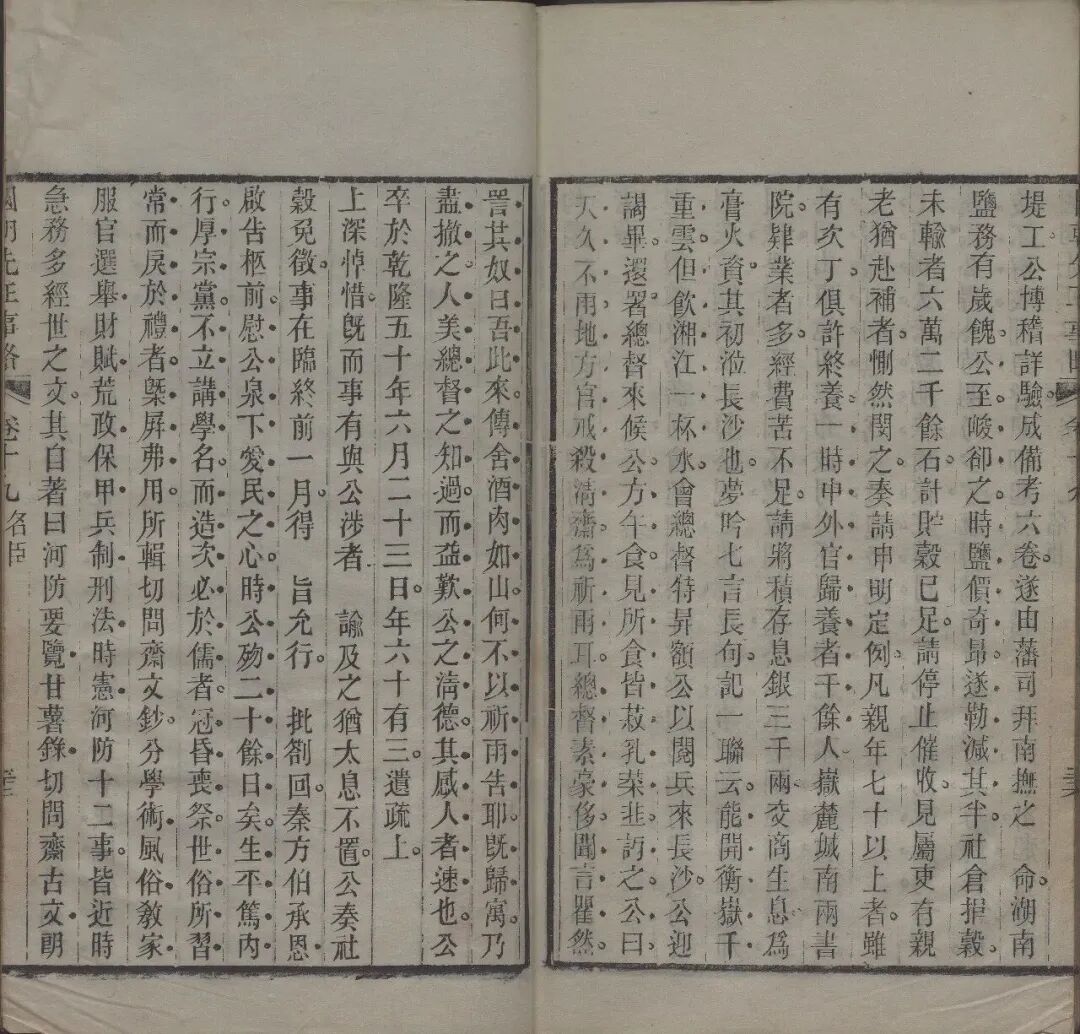 堤工公博稽詳驗成備考六卷遂由藩司拜南撫之　命湖南
鹽務有歲餽公至峻卻之時鹽價奇昂遂勒減其半社倉捐穀
未輸者六萬二千餘石計貯穀已足請停止催收見屬吏有親
老猶赴補者惻然閔之奏請申明定例凡親年七十以上者雖
有次丁俱許終養一時中外官歸養者千餘人嶽麓城南兩書
院肄業者多經費苦不足請將積存息銀三千兩交商生息爲
膏火資其初涖長沙也夢吟七言長句記一聯云能開衡嶽千
重雲但飲湘江一杯水會總督特昇額公以閱兵來長沙公迎
謁畢還署總督來候公方午食見所食皆菽乳菜韭訝之公曰
天久不雨地方官戒殺淸齋爲祈雨耳總督素豪侈聞言瞿然
詈其奴曰吾此來傳舍酒肉如山何不以祈雨告耶旣歸寓乃
盡撤之人美總督之知過而益歎公之淸德其感人者速也公
卒於乾隆五十年六月二十三日年六十有三遺疏上
上深悼惜旣而事有與公涉者　諭及之猶太息不置公奏社
穀免徵事在臨終前一月得　旨允行　批劄回秦方伯承恩
啟告柩前慰公泉下愛民之心時公歿二十餘日矣生平篤內
行厚宗黨不立講學名而造次必於儒者冠昏喪祭世俗所習
常而戾於禮者槩屏弗用所輯切問齋文鈔分學術風俗敎家
服官選舉財賦荒政保甲兵制刑法時憲河防十二事皆近時
急務多經世之文其自著曰河防要覽甘薯錄切問齋古文朙
國朝先正事略　卷十九名臣